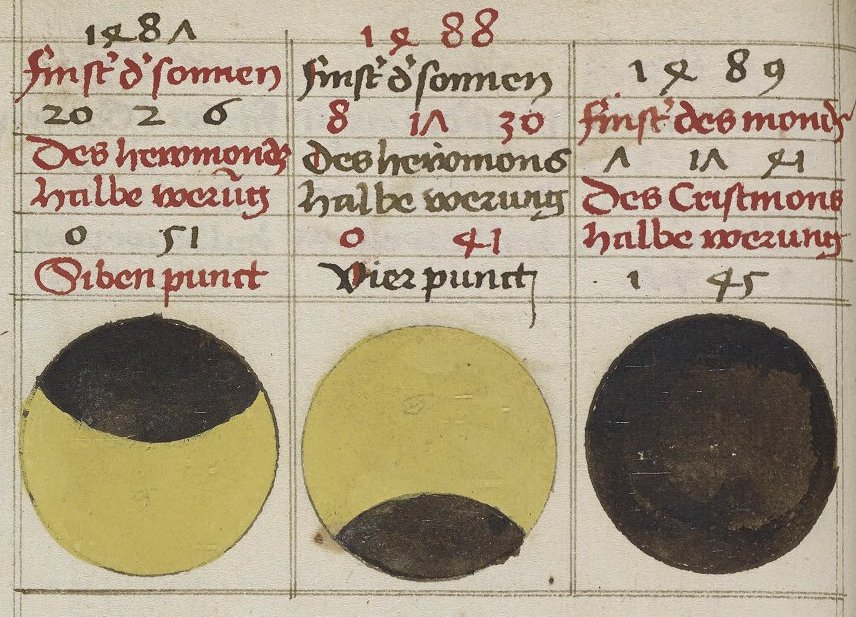 1487
finst' d' sonnen
20 2 6
des hewmonds
halbe werūg
0 51
Siben punct
1488
finst' d' sonnen
8 17 30
des hewmons
halbe werung
0 41
Vier punct
1489
finst' des monds
7 17 41
des Cristmons
halbe werung
1 45